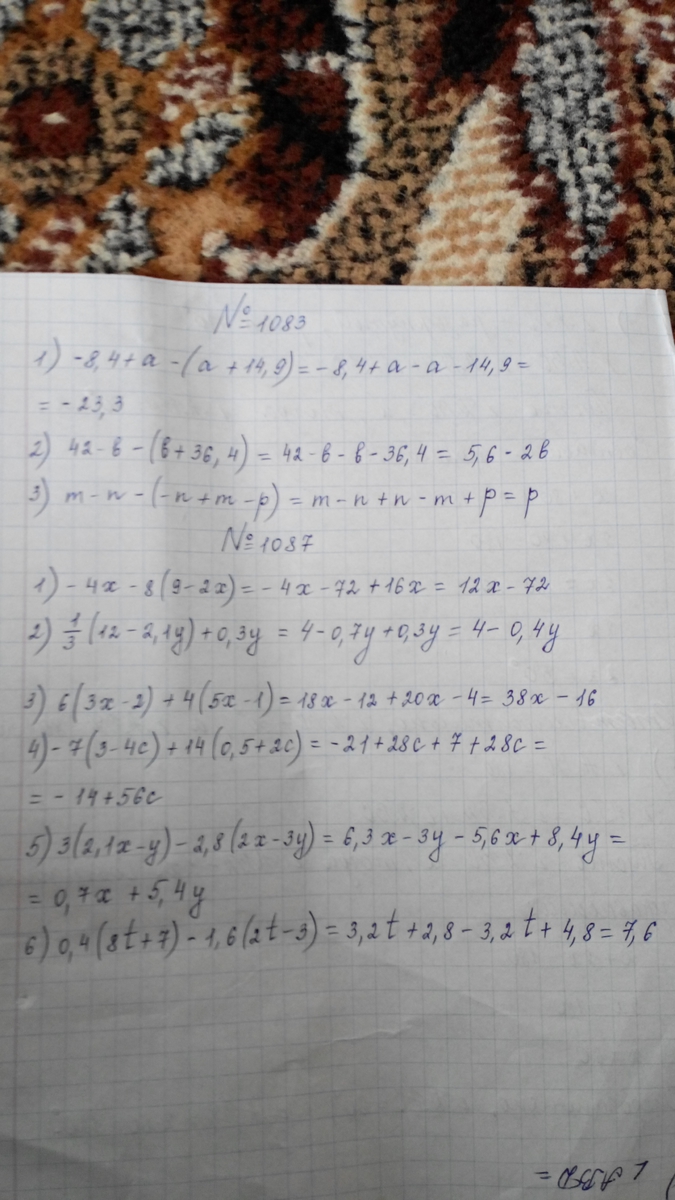 №1083
1) -8,4+a-(a+14,9)=-8,4+a-a-14,9=
=-23,3
2) 42-в-(в+36,4)=42-в-в-36,4=5,6-2в
3) m-n-(-n+m-p)=m-n+n-m+p=p
№1087
1) -4x-8(9-2x)=-4x-72+16x=12x-72
2) 1/3(12-2,1y)+0,3y=4-0,7y+0,3y=4-0,4y
3) 6(3x-2)+4(5x-1)=18x-12+20x-4=38x-16
4) -7(3-4c)+14(0,5+2c)=-21+28c+7+28c=
=-14+56c
5) 3(2,1x-y)-2,8(2x-3y)=6,3x-3y-5,6x+8,4y=
=0,7x+5,4y
6) 0,4(8t+7)-1,6(2t-3)=3,2t+2,8-3,2t+4,8=7,6